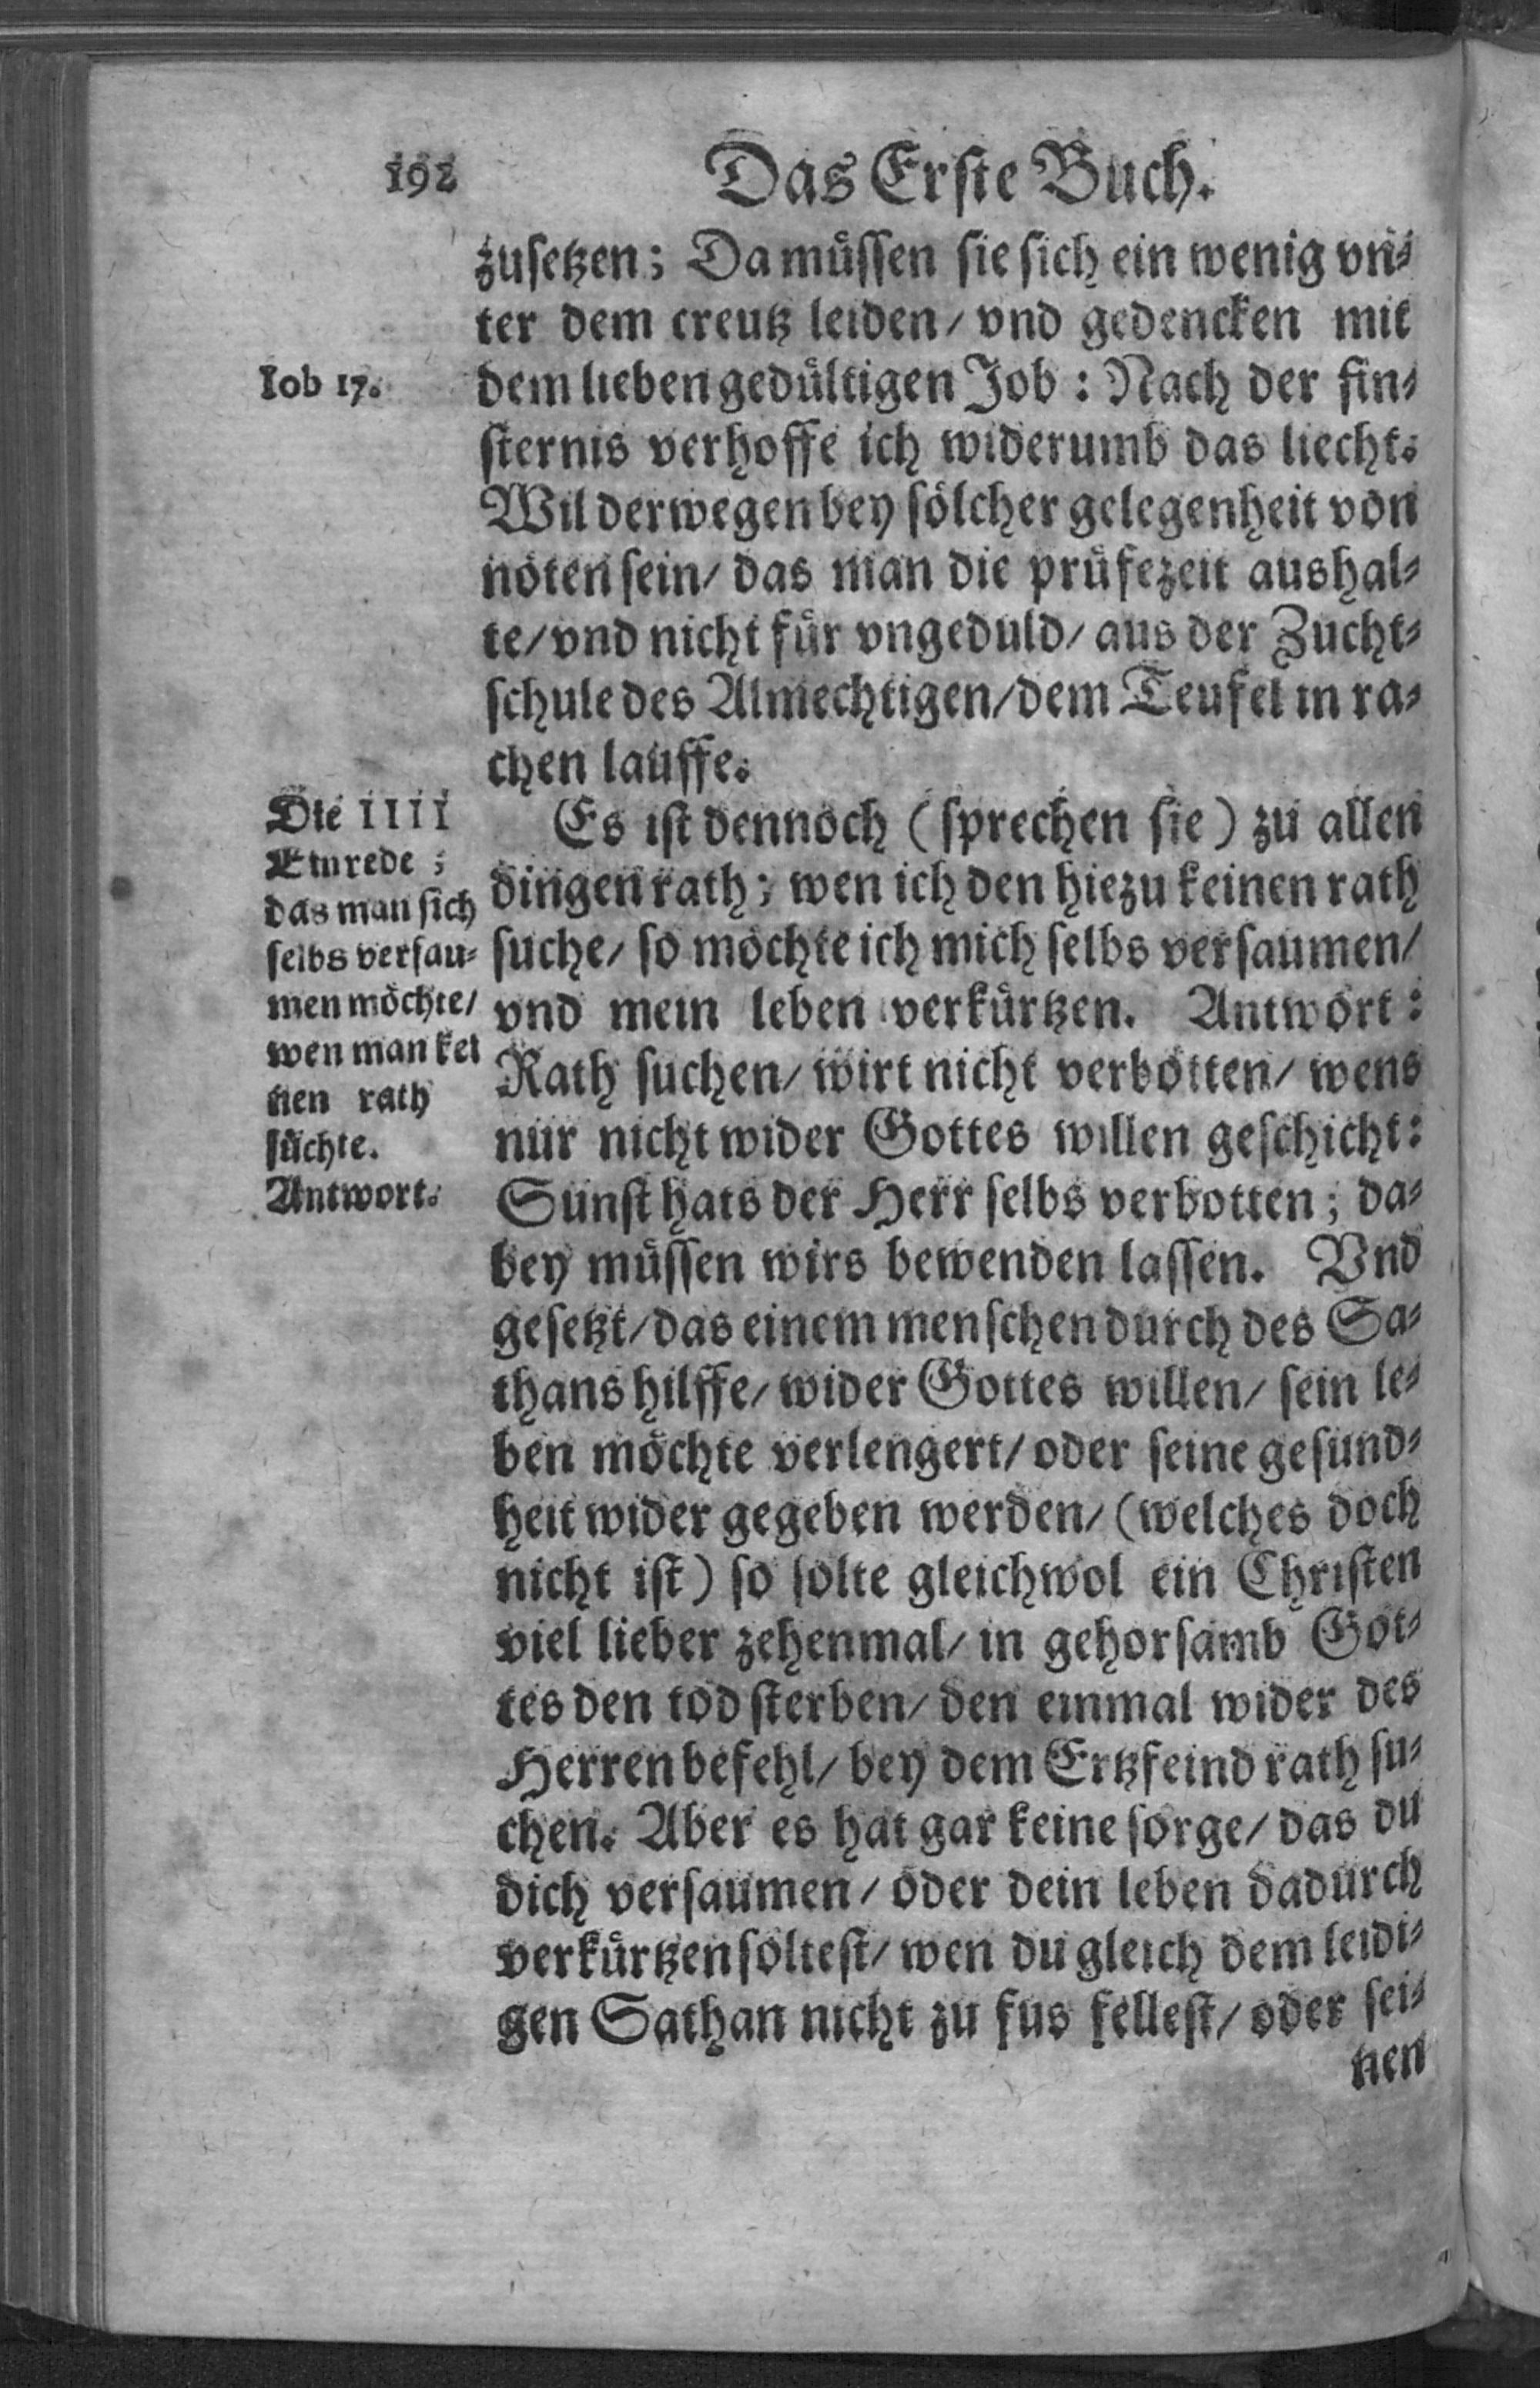 192
Das Erste Buch.
zusetzen; Da müssen sie sich ein wenig vn⸗
ter dem creutz leiden/ vnd gedencken mit
Iob 17.
dem lieben gedültigen Job: Nach der fin⸗
sternis verhoffe ich widerumb das liecht.
Wil derwegen bey sölcher gelegenheit von
nöten sein/ das man die prüfezeit aushal⸗
te/ vnd nicht für vngeduld/ aus der Zucht⸗
schule des Almechtigen/ dem Teufel in ra⸗
chen lauffe.
Die IIII
Einrede;
das man sich
selbs versau⸗
men möchte/
wen man kei
nen rath
süchte.
Antwort.
Es ist dennoch (sprechen sie) zu allen
dingen rath; wen ich den hiezu keinen rath
suche/ so möchte ich mich selbs versaumen/
vnd mein leben verkürtzen. Antwort:
Rath suchen/ wirt nicht verbotten/ wens
nur nicht wider Gottes willen geschicht:
Sunst hats der Herr selbs verbotten; da⸗
bey müssen wirs bewenden lassen. Vnd
gesetzt/ das einem menschen durch des Sa⸗
thans hilffe/ wider Gottes willen/ sein le⸗
ben möchte verlengert/ oder seine gesund⸗
heit wider gegeben werden/ (welches doch
nicht ist) so solte gleichwol ein Christen
viel lieber zehenmal/ in gehorsamb Got⸗
tes den tod sterben/ den einmal wider des
Herren befehl/ bey dem Ertzfeind rath su⸗
chen. Aber es hat gar keine sorge/ das du
dich versaumen/ oder dein leben dadurch
verkürtzen soltest/ wen du gleich dem leidi⸗
gen Sathan nicht zu fus fellest/ oder sei⸗
nen